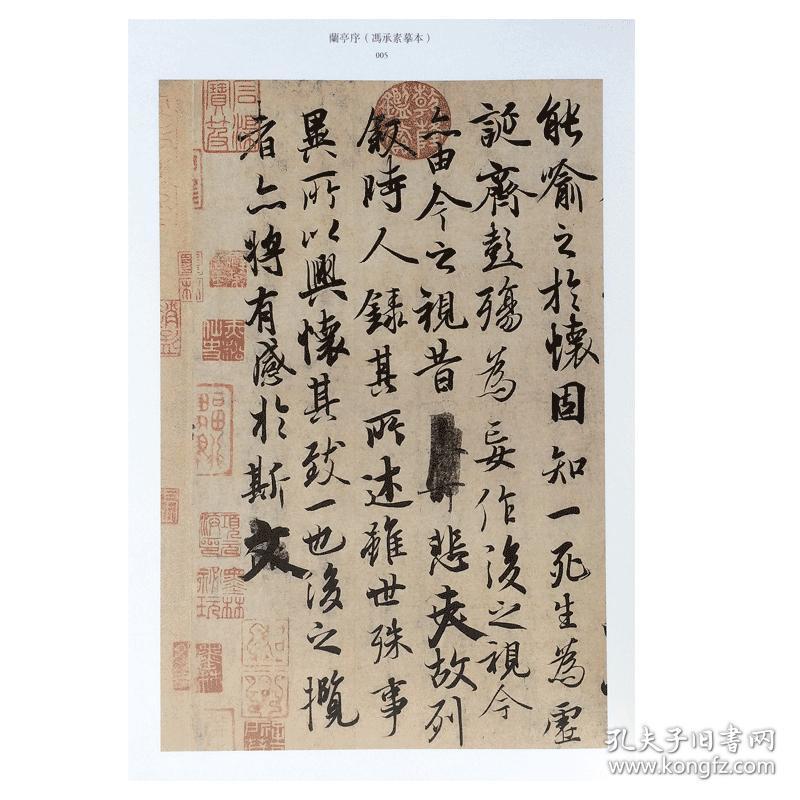 蘭亭序（馮承素摹本）
005
能喻之於懷固知一死生為虛
誕齊彭殤為妄作後之視今
亦由今之視昔 悲夫故列
敘時人錄其所述雖世殊事
異所以興懷其致一也後之攬
者亦將有感於斯文
孔夫子旧书网
www.kongfz.com